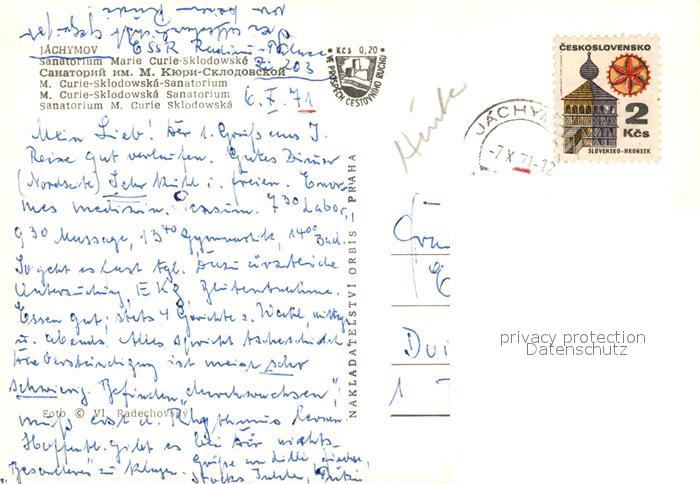 JÁCHYMOV ČSSR Radium-Palace
Sanatorium Marie Curie-Sklodowské Zi. 203
Санаторий им. М. Кюри-Склодовской
M. Curie-Sklodowská-Sanatorium
M. Curie-Sklodowská Sanatorium
Sanatorium M. Curie Sklodowská
6. X. 71
Kčs 0,20
VE PROSPĚCH CESTOVNÍHO RUCHU
ČESKOSLOVENSKO
2 Kčs
SLOVENSKO-HRONSEK
JÁCHYM
-7.X.71-12
Mein Lieb! Der 1. Gruß aus J.
Reise gut verlaufen. Gutes Zimmer
(Nordseite) Sehr kühl i. freien. Enor-
mes medizin. Pensum. 7³⁰ Labor,
9³⁰ Massage, 13⁴⁰ Gymnastik, 14⁰⁰ Bad.
So geht es fast tgl. Dazu ärztliche
Untersuchung, EKG, Blutentnahme.
Essen gut; stets 4 Gerichte z. Wahl, mittags
u. abends. Alles spricht tschechisch
Verständigung ist meist sehr
schwierig. Befinden „durchwachsen",
muß erst d. Rhythmus kennen.
Foto © Vl. Radechovský
Hoffentl. gibt es bei Dir nichts
"Besonderes" zu klagen. Grüße an
NAKLADATELSTVÍ ORBIS — PRAHA
Dui
1
privacy protection
Datenschutz